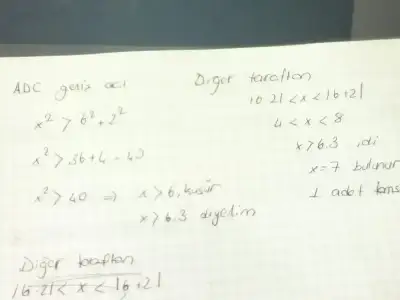 ADC geniş açı
x² > 6² + 2²
x² > 36 + 4 = 40
x² > 40 ⇒ x > 6, küsür
x > 6.3 diyelim
Diğer taraftan
|6-2| < x < |6+2|
Diğer taraftan
|6-2| < x < |6+2|
4 < x < 8
x > 6.3 idi
x = 7 bulunur
1 adet